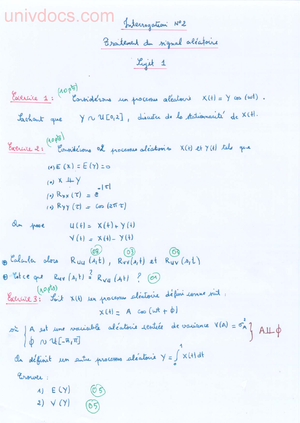 univdocs.com
Interrogation N°2
Traitement du signal aléatoire
Sujet 1
Exercice 1 : (10 pts) Considérons un processus aléatoire X(t) = Y cos(ωt).
Sachant que Y ~ U[0,1], discuter de la stationnarité de X(t).
Exercice 2 : (10 pts) Considérons 2 processus aléatoires X(t) et Y(t) tels que
(*) E(X) = E(Y) = 0
(*) X ⊥⊥ Y
(*) Rxx(τ) = e^-|τ|
(*) Ryy(τ) = cos(2πτ)
On pose U(t) = X(t) + Y(t)
V(t) = X(t) - Y(t)
Calculer alors Ruu(s,t), Rvv(s,t) et Ruv(s,t)
Est ce que Ruv(s,t) ?= Rvu(s,t) ?
Exercice 3 : (10 pts) Soit X(t) un processus aléatoire défini comme suit :
X(t) = A cos(ωt + ϕ)
où { A est une variable aléatoire centrée de variance V(A) = σ²A } A ⊥⊥ ϕ
ϕ ~ U[-π,π]
On définit un autre processus aléatoire Y = ∫₀¹ X(t) dt
Trouver :
1) E(Y) 05
2) V(Y) 05